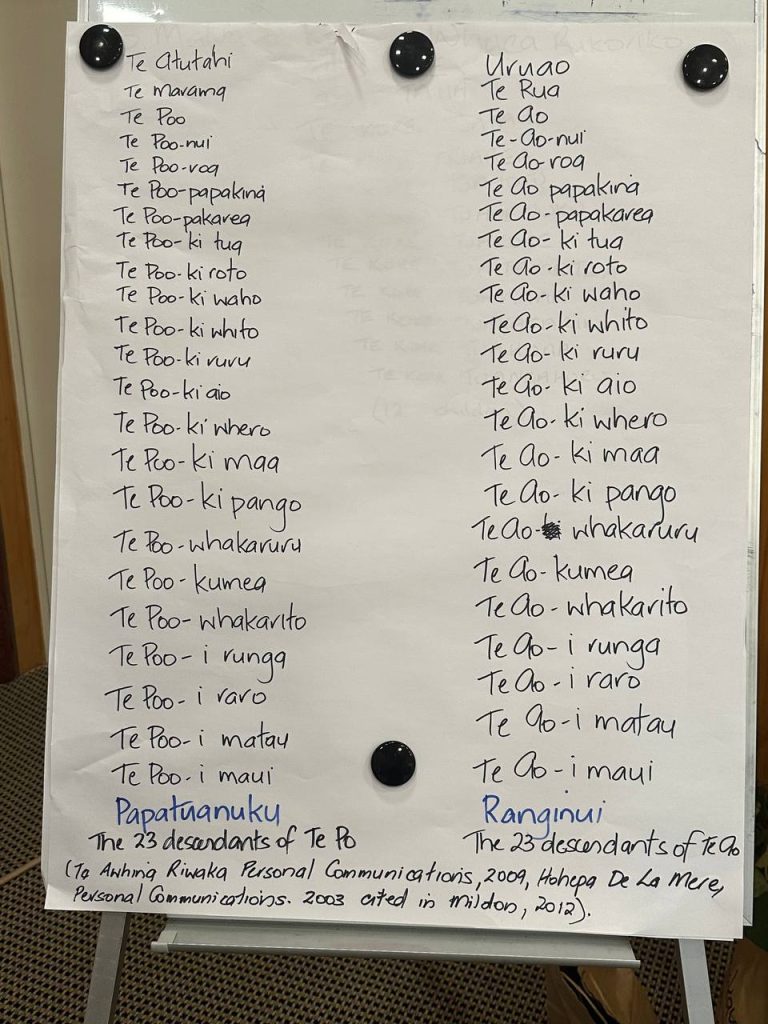 Te Atutahi
Te Marama
Te Poo
Te Poo-nui
Te Poo-roa
Te Poo-papakina
Te Poo-pakarea
Te Poo-ki tua
Te Poo-ki roto
Te Poo-ki waho
Te Poo-ki whito
Te Poo-ki ruru
Te Poo-ki aio
Te Poo-ki whero
Te Poo-ki maa
Te Poo-ki pango
Te Poo-whakaruru
Te Poo-kumea
Te Poo-whakarito
Te Poo-i runga
Te Poo-i raro
Te Poo-i matau
Te Poo-i maui
Papatuanuku
The 23 descendants of Te Po
Uruao
Te Rua
Te Ao
Te-Ao-nui
Te Ao-roa
Te Ao papakina
Te Ao-papakarea
Te Ao-ki tua
Te Ao-ki roto
Te Ao-ki waho
Te Ao-ki whito
Te Ao-ki ruru
Te Ao-ki aio
Te Ao-ki whero
Te Ao-ki maa
Te Ao-ki pango
Te Ao- whakaruru
Te Ao-kumea
Te Ao-whakarito
Te Ao-i runga
Te Ao-i raro
Te Ao-i matau
Te Ao-i maui
Ranginui
The 23 descendants of Te Ao
(Ta Awhina Riwaka Personal Communications, 2009, Hohepa De La Mere,
Personal Communications. 2003 cited in Mildon, 2012).